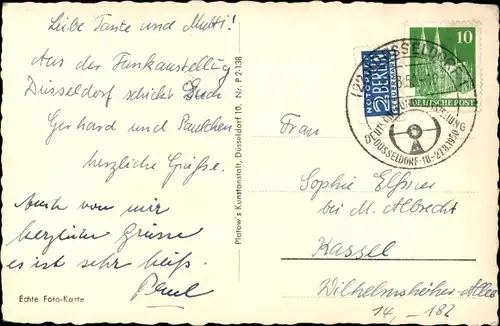 Liebe Tante und Mutti!
Aus der Funkausstellung
Düsseldorf schickt Euch
Gerhard und Paulchen
herzliche Grüsse.
Auch von mir
herzliche Grüsse
es ist sehr heiß.
Paul
Echte Foto-Karte
Platow's Kunstanstalt, Düsseldorf 10, Nr. P 2-138
NOTOPFER
2 BERLIN
STEUERMARKE
10
DEUTSCHE POST
DÜSSELDORF
DÜSSELDORF·18-27.8.1950
Frau
Sophie
bei M. Albrecht
Kassel
Wilhelmshöher-Allee
14, -182